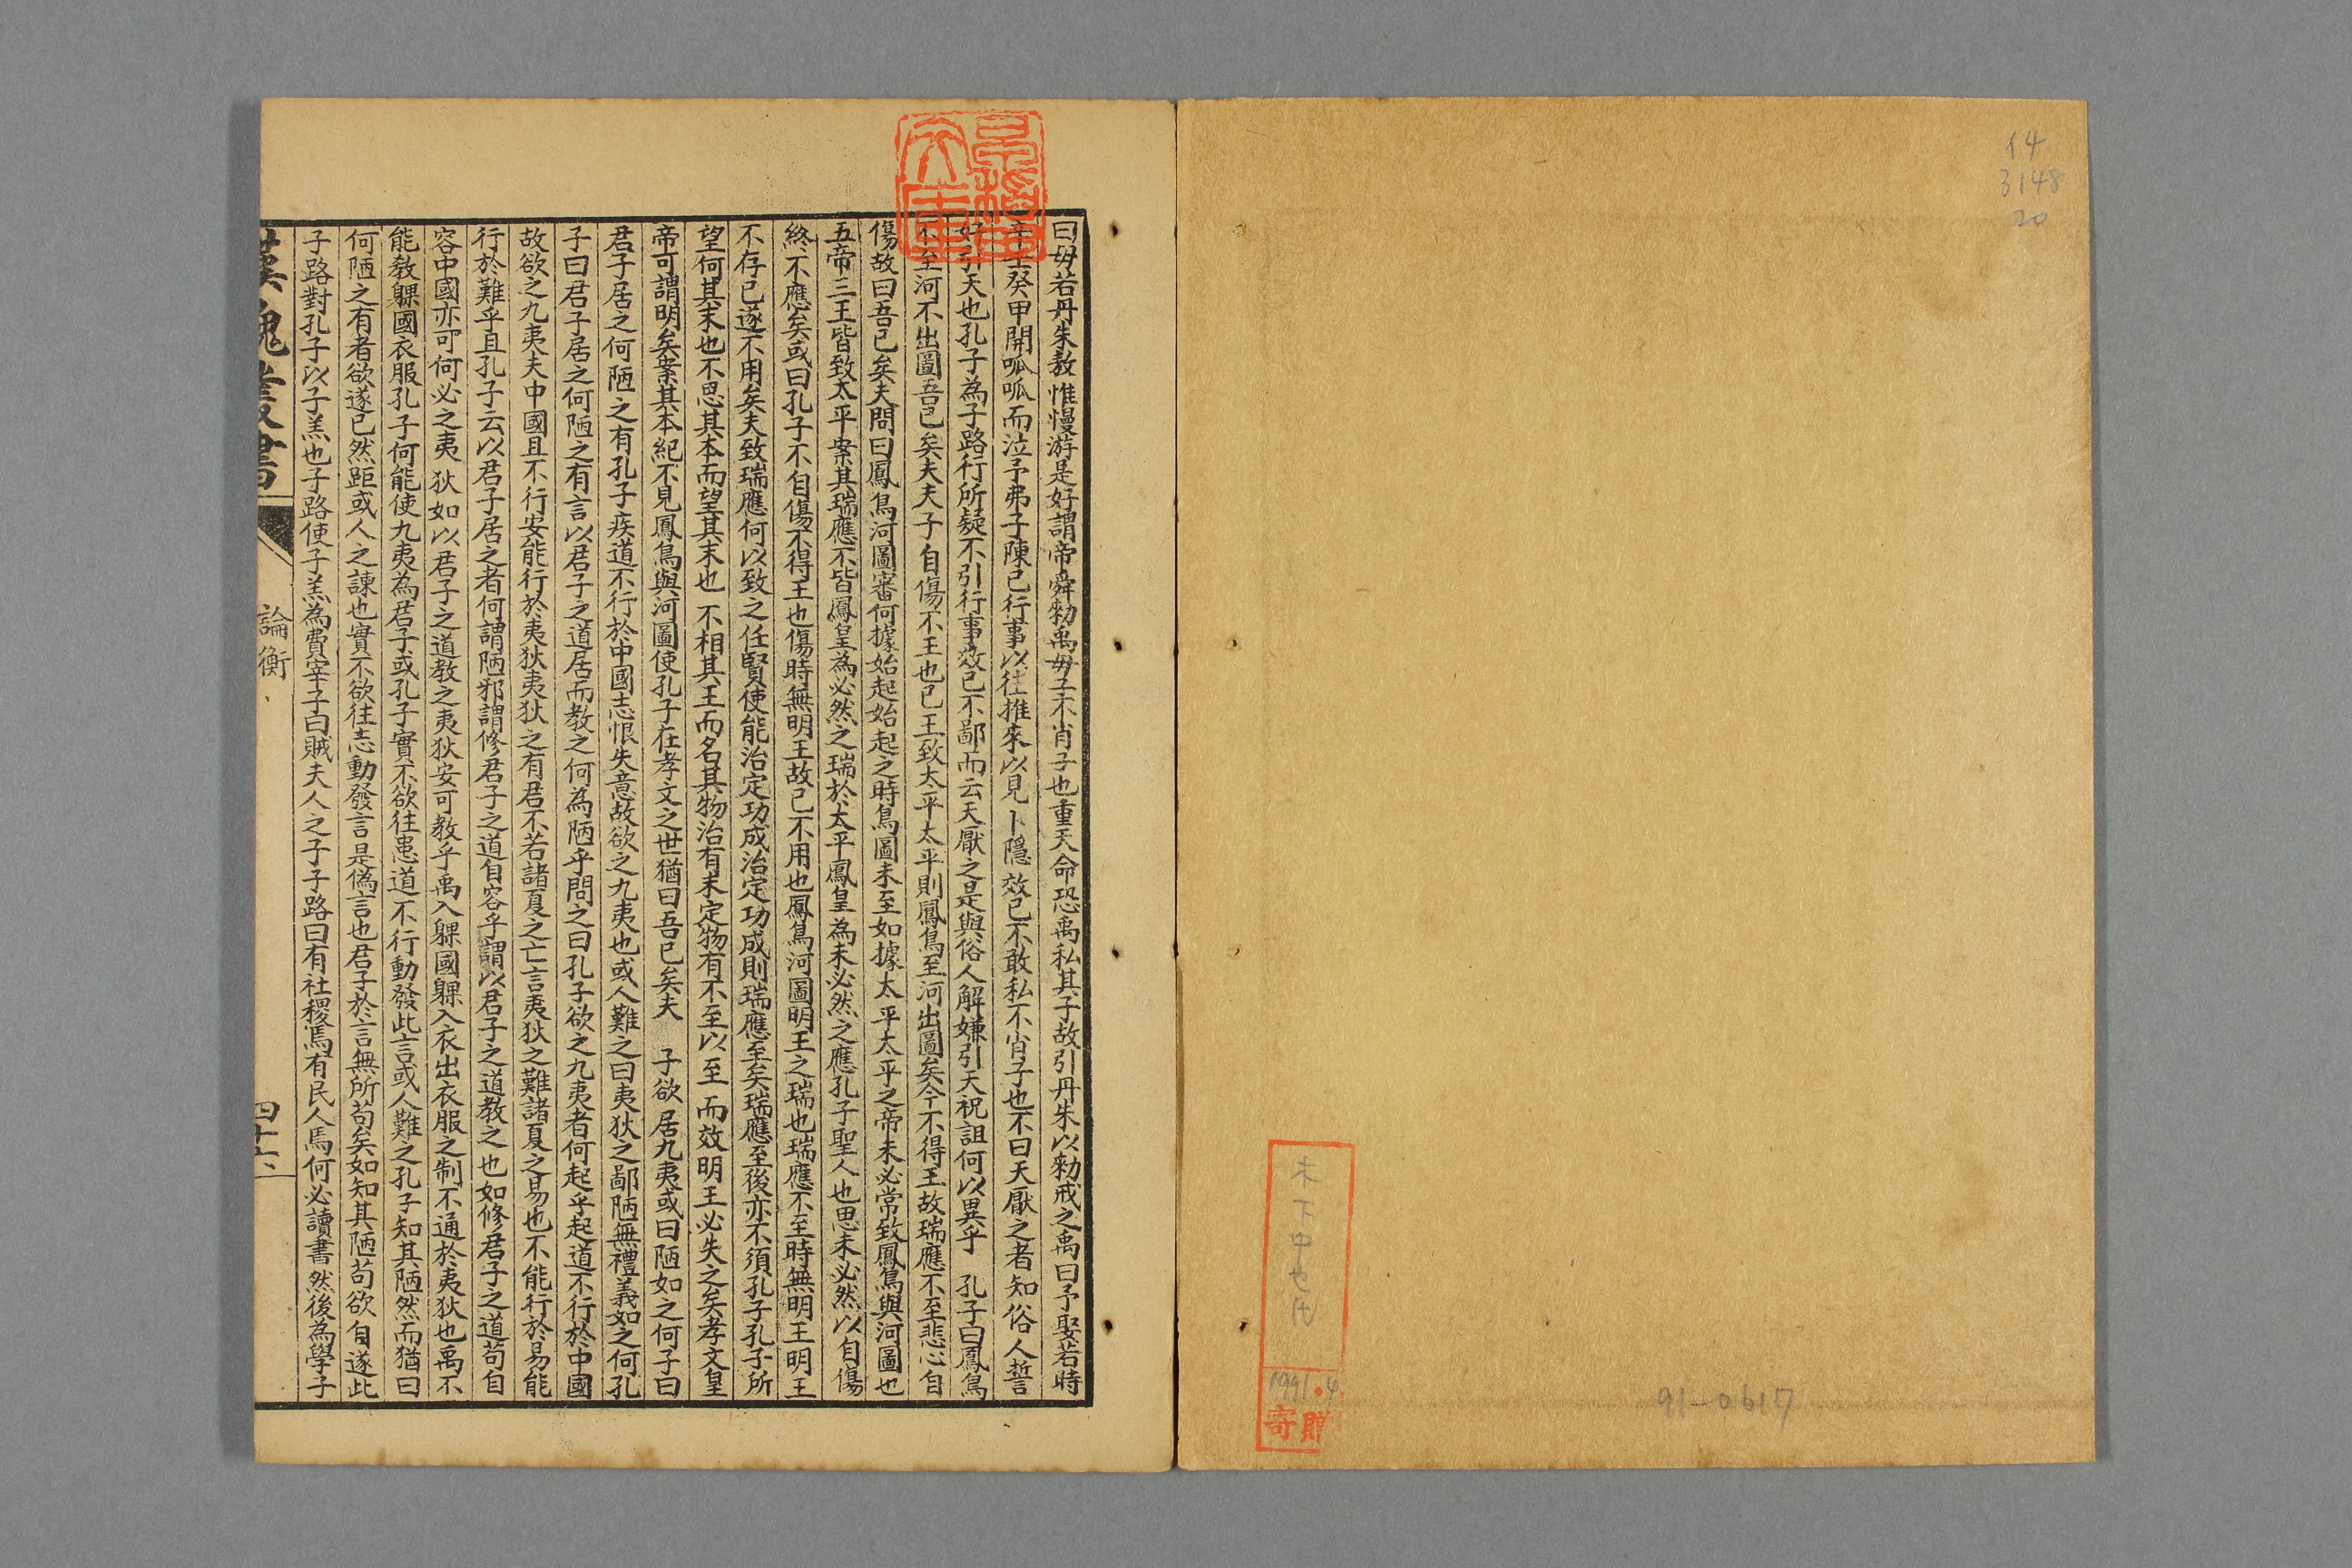 14
3148
20
木下中也氏
1991.4.
寄贈
91-0617
曰毋若丹朱敖惟慢游是好謂帝舜勑禹毋子不肖子也重天命恐禹私其子故引丹朱以勑戒之禹曰予娶若時
辛壬癸甲開呱呱而泣予弗子陳已行事以往推來以見卜隱效已不敢私不肖子也不曰天厭之者知俗人誓
好引天也孔子為子路行所疑不引行事效已不鄙而云天厭之是與俗人解嫌引天祝詛何以異乎　孔子曰鳳鳥
不至河不出圖吾已矣夫夫子自傷不王也已王致太平太平則鳳鳥至河出圖矣今不得王故瑞應不至悲心自
傷故曰吾已矣夫問曰鳳鳥河圖審何據始起始起之時鳥圖未至如據太平太平之帝未必常致鳳鳥與河圖也
五帝三王皆致太平案其瑞應不皆鳳皇為必然之瑞於太平鳳皇為未必然之應孔子聖人也思未必然以自傷
終不應矣或曰孔子不自傷不得王也傷時無明王故已不用也鳳鳥河圖明王之瑞也瑞應不至時無明王明王
不存已遂不用矣夫致瑞應何以致之任賢使能治定功成治定功成則瑞應至矣瑞應至後亦不須孔子孔子所
望何其末也不思其本而望其末也不相其王而名其物治有未定物有不至以至而效明王必失之矣孝文皇
帝可謂明矣案其本紀不見鳳鳥與河圖使孔子在孝文之世猶曰吾已矣夫　子欲居九夷或曰陋如之何子曰
君子居之何陋之有孔子疾道不行於中國志恨失意故欲之九夷也或人難之曰夷狄之鄙陋無禮義如之何孔
子曰君子居之何陋之有言以君子之道居而教之何為陋乎問之曰孔子欲之九夷者何起乎起道不行於中國
故欲之九夷夫中國且不行安能行於夷狄夷狄之有君不若諸夏之亡言夷狄之難諸夏之易也不能行於易能
行於難乎且孔子云以君子居之者何謂陋邪謂修君子之道自容乎謂以君子之道教之也如修君子之道苟自
容中國亦可何必之夷狄如以君子之道教之夷狄安可教乎禹入躶國躶入衣出衣服之制不通於夷狄也禹不
能教躶國衣服孔子何能使九夷為君子或孔子實不欲往患道不行動發此言或人難之孔子知其陋然而猶曰
何陋之有者欲遂已然距或人之諫也實不欲往志動發言是偽言也君子於言無所苟矣如知其陋苟欲自遂此
子路對孔子以子羔也子路使子羔為費宰子曰賊夫人之子子路曰有社稷焉有民人焉何必讀書然後為學子
漢魏叢書
論衡